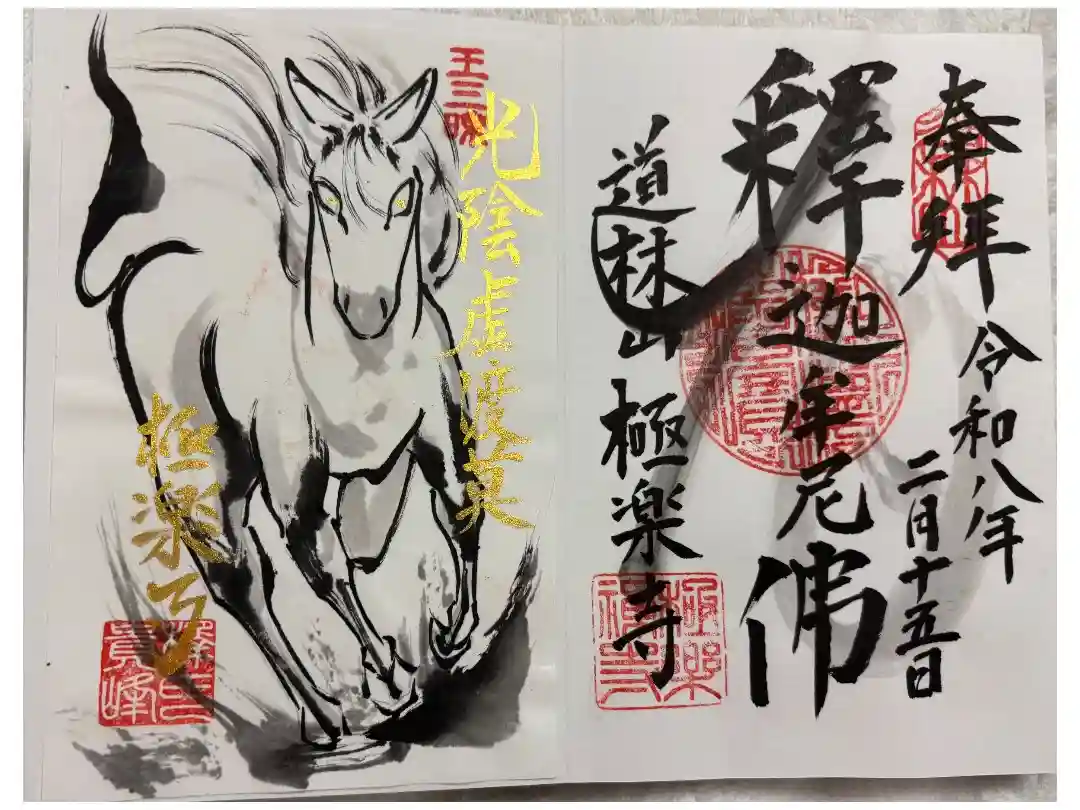 奉拝
令和八年
二月十五日
釋迦牟尼佛
道林山
極楽寺
王三昧
光陰虚度莫
極楽
貴峰